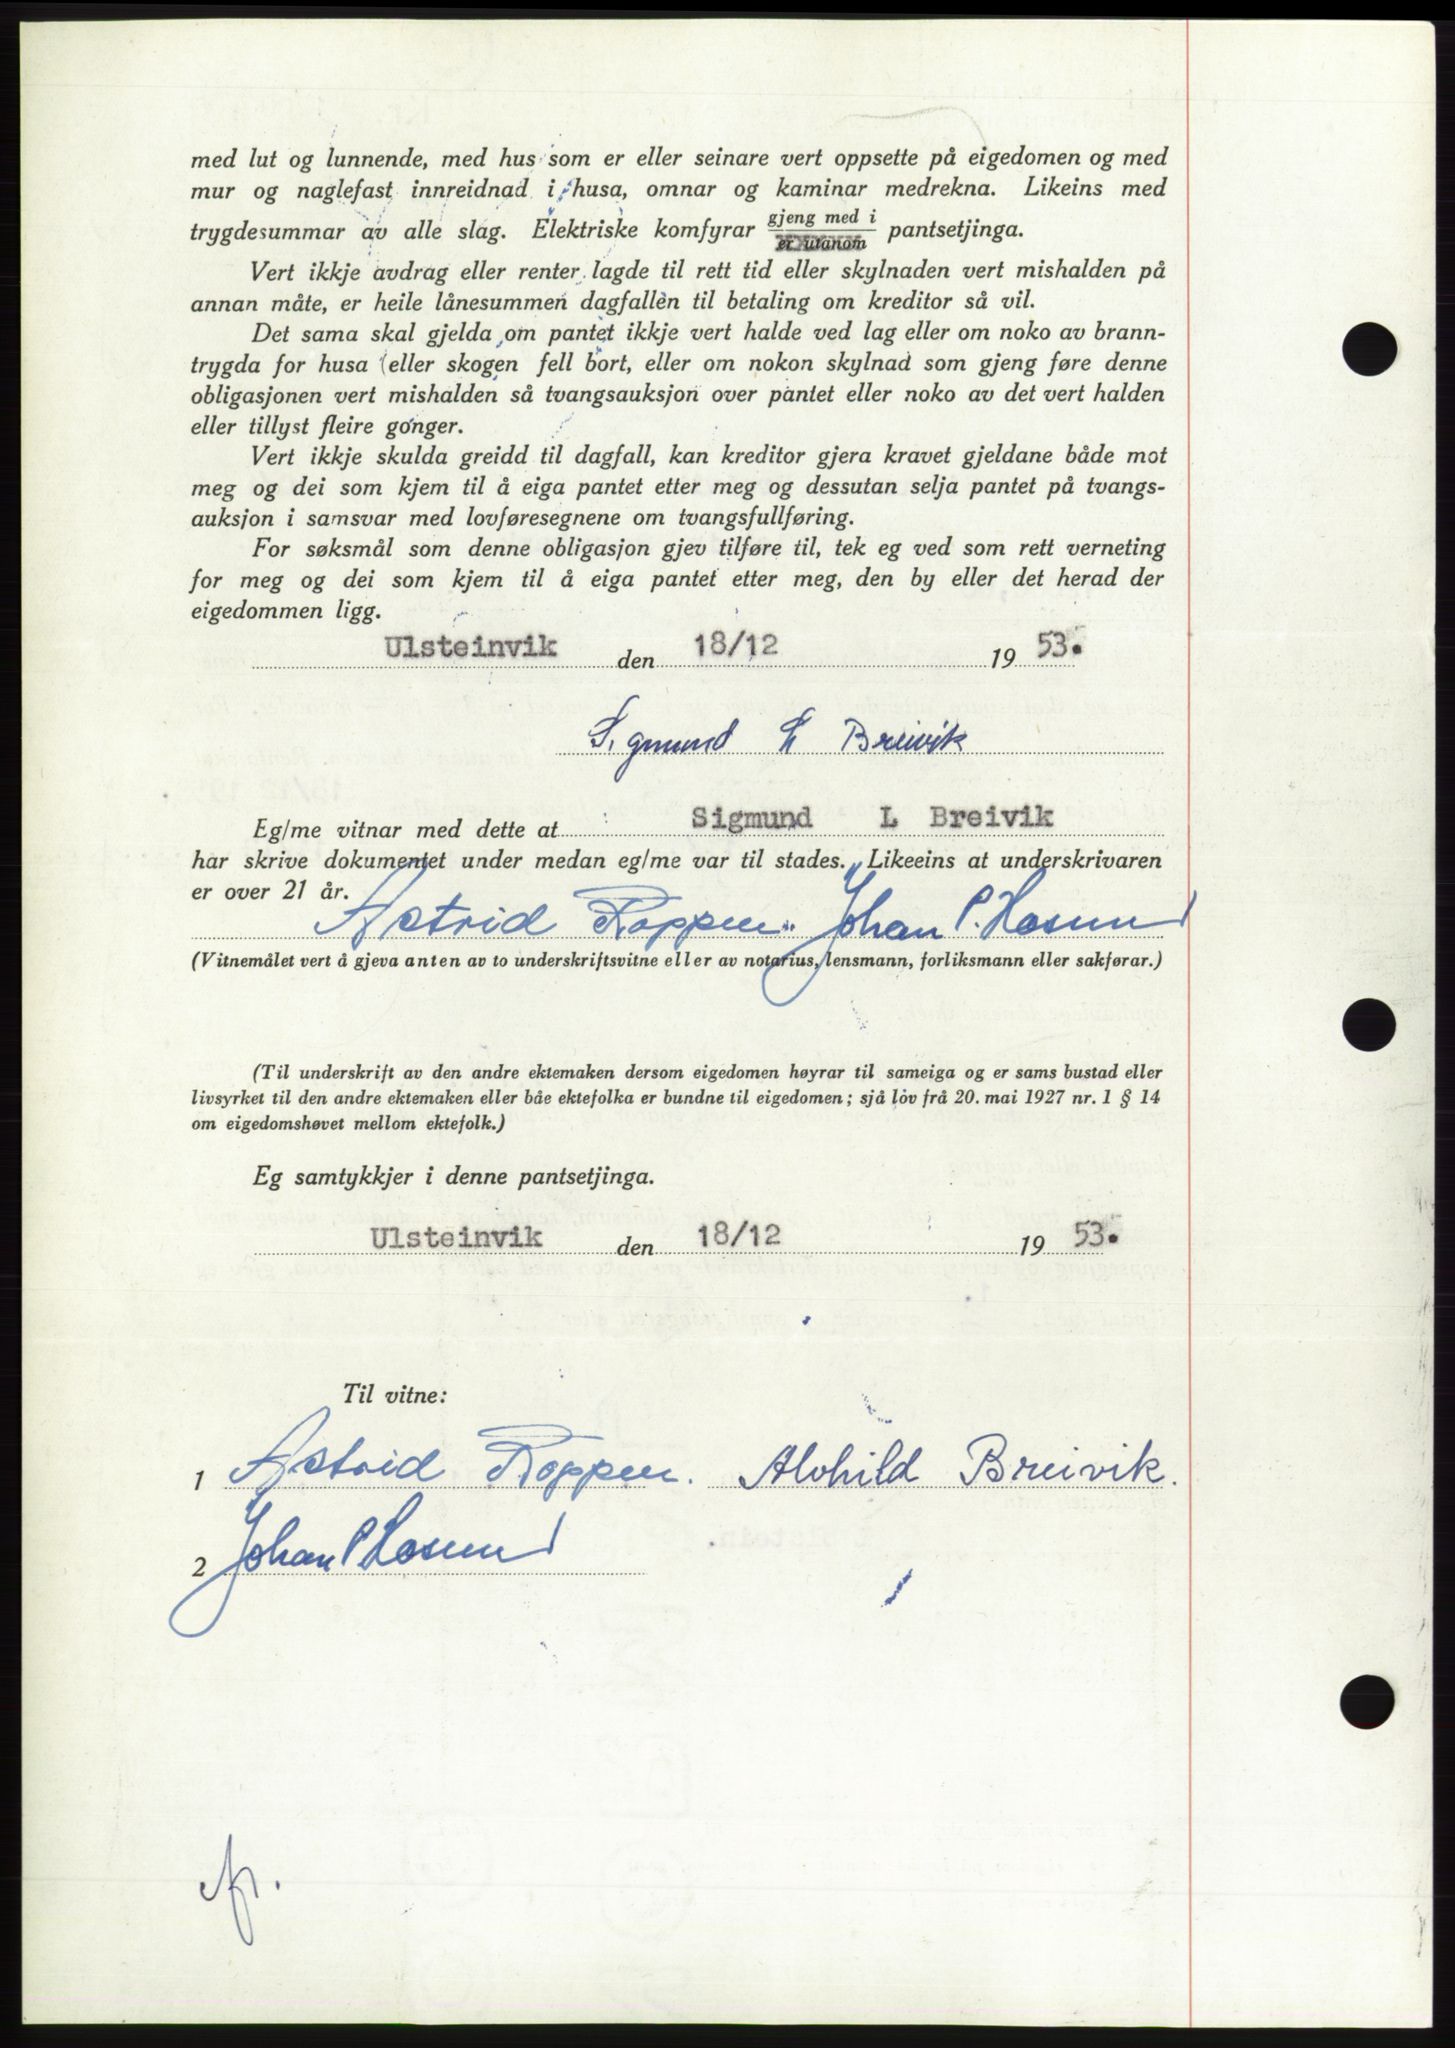 med lut og lunnende, med hus som er eller seinare vert oppsette på eigedomen og med
mur og naglefast innreidnad i husa, omnar og kaminar medrekna. Likeins med
trygdesummar av alle slag. Elektriske komfyrar gjeng med i / er utanom pantsetjinga.
Vert ikkje avdrag eller renter lagde til rett tid eller skylnaden vert mishalden på
annan måte, er heile lånesummen dagfallen til betaling om kreditor så vil.
Det sama skal gjelda om pantet ikkje vert halde ved lag eller om noko av brann-
trygda for husa (eller skogen fell bort, eller om nokon skylnad som gjeng føre denne
obligasjonen vert mishalden så tvangsauksjon over pantet eller noko av det vert halden
eller tillyst fleire gonger.
Vert ikkje skulda greidd til dagfall, kan kreditor gjera kravet gjeldane både mot
meg og dei som kjem til å eiga pantet etter meg og dessutan selja pantet på tvangs-
auksjon i samsvar med lovføresegnene om tvangsfullføring.
For søksmål som denne obligasjon gjev tilføre til, tek eg ved som rett verneting
for meg og dei som kjem til å eiga pantet etter meg, den by eller det herad der
eigedommen ligg.
Ulsteinvik den 18/12 19 53.
Sigmund L Breivik
Eg/me vitnar med dette at Sigmund L Breivik
har skrive dokumentet under medan eg/me var til stades. Likeeins at underskrivaren
er over 21 år.
Astrid Roppen. Johan P. Hasund
(Vitnemålet vert å gjeva anten av to underskriftsvitne eller av notarius, lensmann, forliksmann eller sakførar.)
(Til underskrift av den andre ektemaken dersom eigedomen høyrar til sameiga og er sams bustad eller
livsyrket til den andre ektemaken eller båe ektefolka er bundne til eigedomen; sjå lov frå 20. mai 1927 nr. 1 § 14
om eigedomshøvet mellom ektefolk.)
Eg samtykkjer i denne pantsetjinga.
Ulsteinvik den 18/12 19 53.
Til vitne:
1 Astrid Roppen. Alvhild Breivik.
2 Johan P Hasund